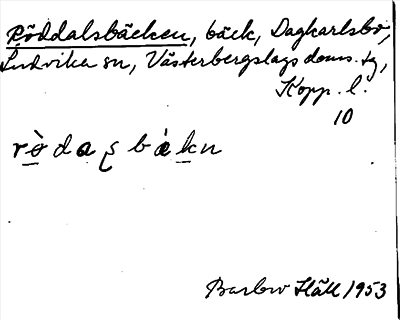 Röddalsbäcken, bäck, Dagkarlsbo,
Ludvika sn, Västerbergslags doms. tg,
Kopp. l.
10
rö̀daʂbä̀kn
Barbro Häll 1953